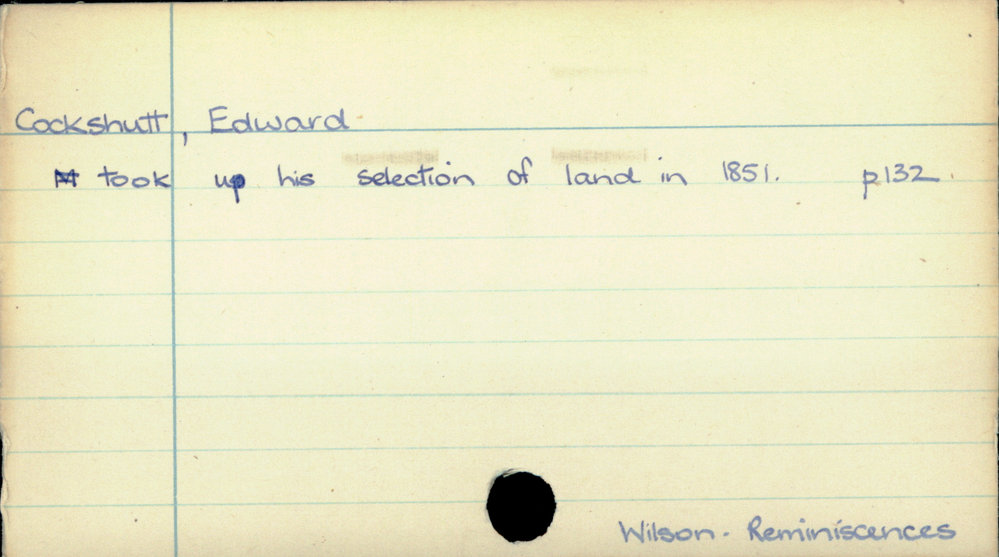 Cockshutt, Edward
took up his selection of land in 1851. p132.
Wilson. Reminiscences